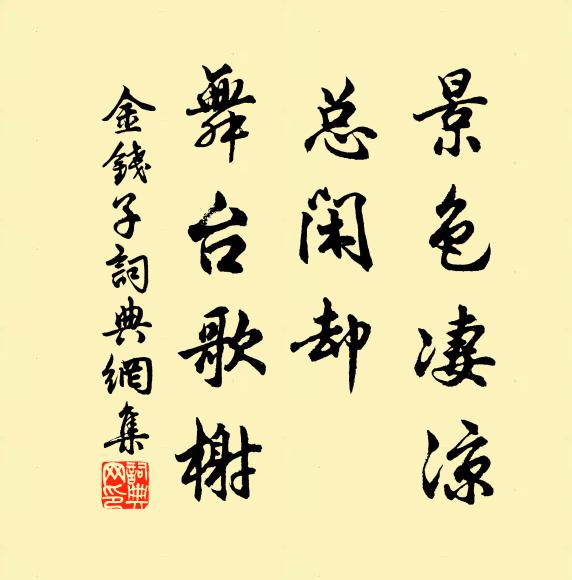 景色凄凉
总闲却
舞台歌榭
金錢子詞典網集
詞典
网印